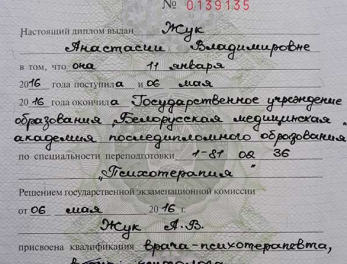 № 0139135
Настоящий диплом выдан Жук
Анастасии Владимировне
в том, что она 11 января
2016 года поступила и 06 мая
2016 года окончила Государственное учреждение
образования „Белорусская медицинская
академия последипломного образования
по специальности переподготовки 1-81 02 36
„Психотерапия“
Решением государственной экзаменационной комиссии
от 06 мая 2016 г.
Жук А.В.
присвоена квалификация врача-психотерапевта,